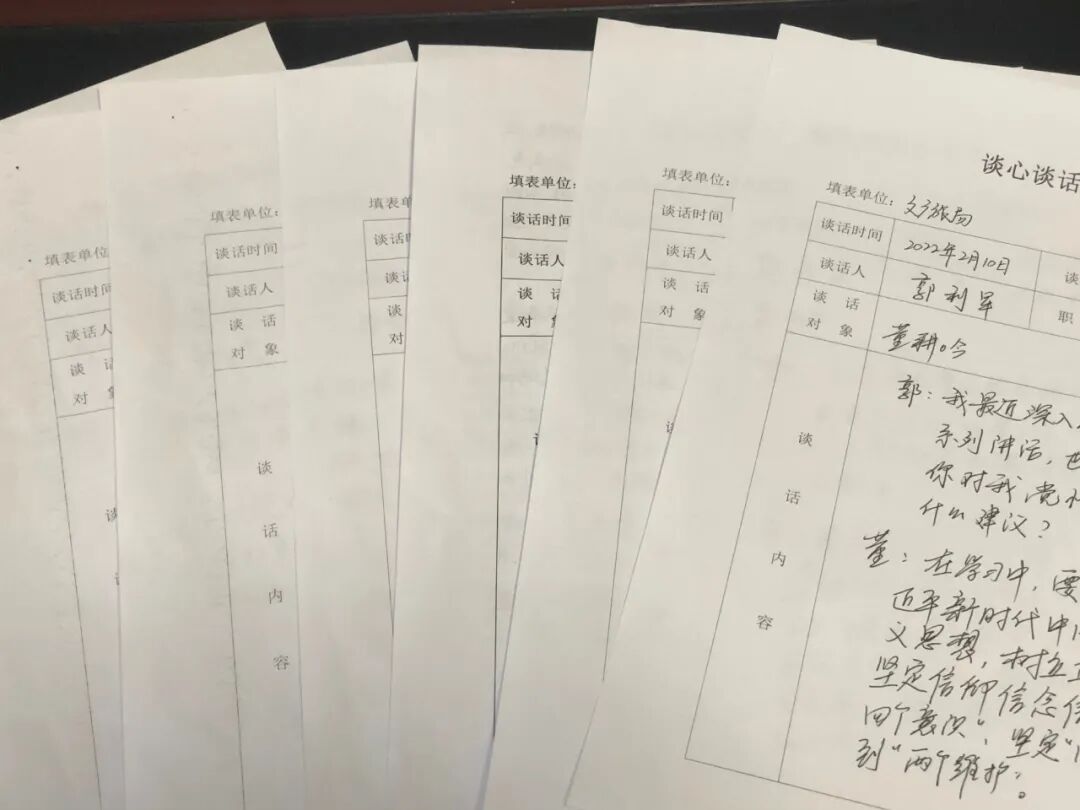 填表单位:
谈话时间
谈话人
谈 话
对 象
谈
填表单位:
谈话时间
谈话人
谈 话
对 象
谈
话
内
容
填表单位:
谈话时
谈话
谈
对
填表单位:
谈话时间
谈话人
谈 话
对 象
填表单位:
谈话时间
谈话人
谈 话
对 象
谈心谈话
填表单位: 文广旅局
谈话时间 2022年2月10日 谈
谈话人 郭利军 职
谈 话
对 象
董耕吟
谈
话
内
容
郭:我最近深入
系列讲话,也
你对我党
什么建议?
董:在学习中,要
近平新时代中
义思想,树立
坚定信仰信念信
四个意识",坚定"
到"两个维护。